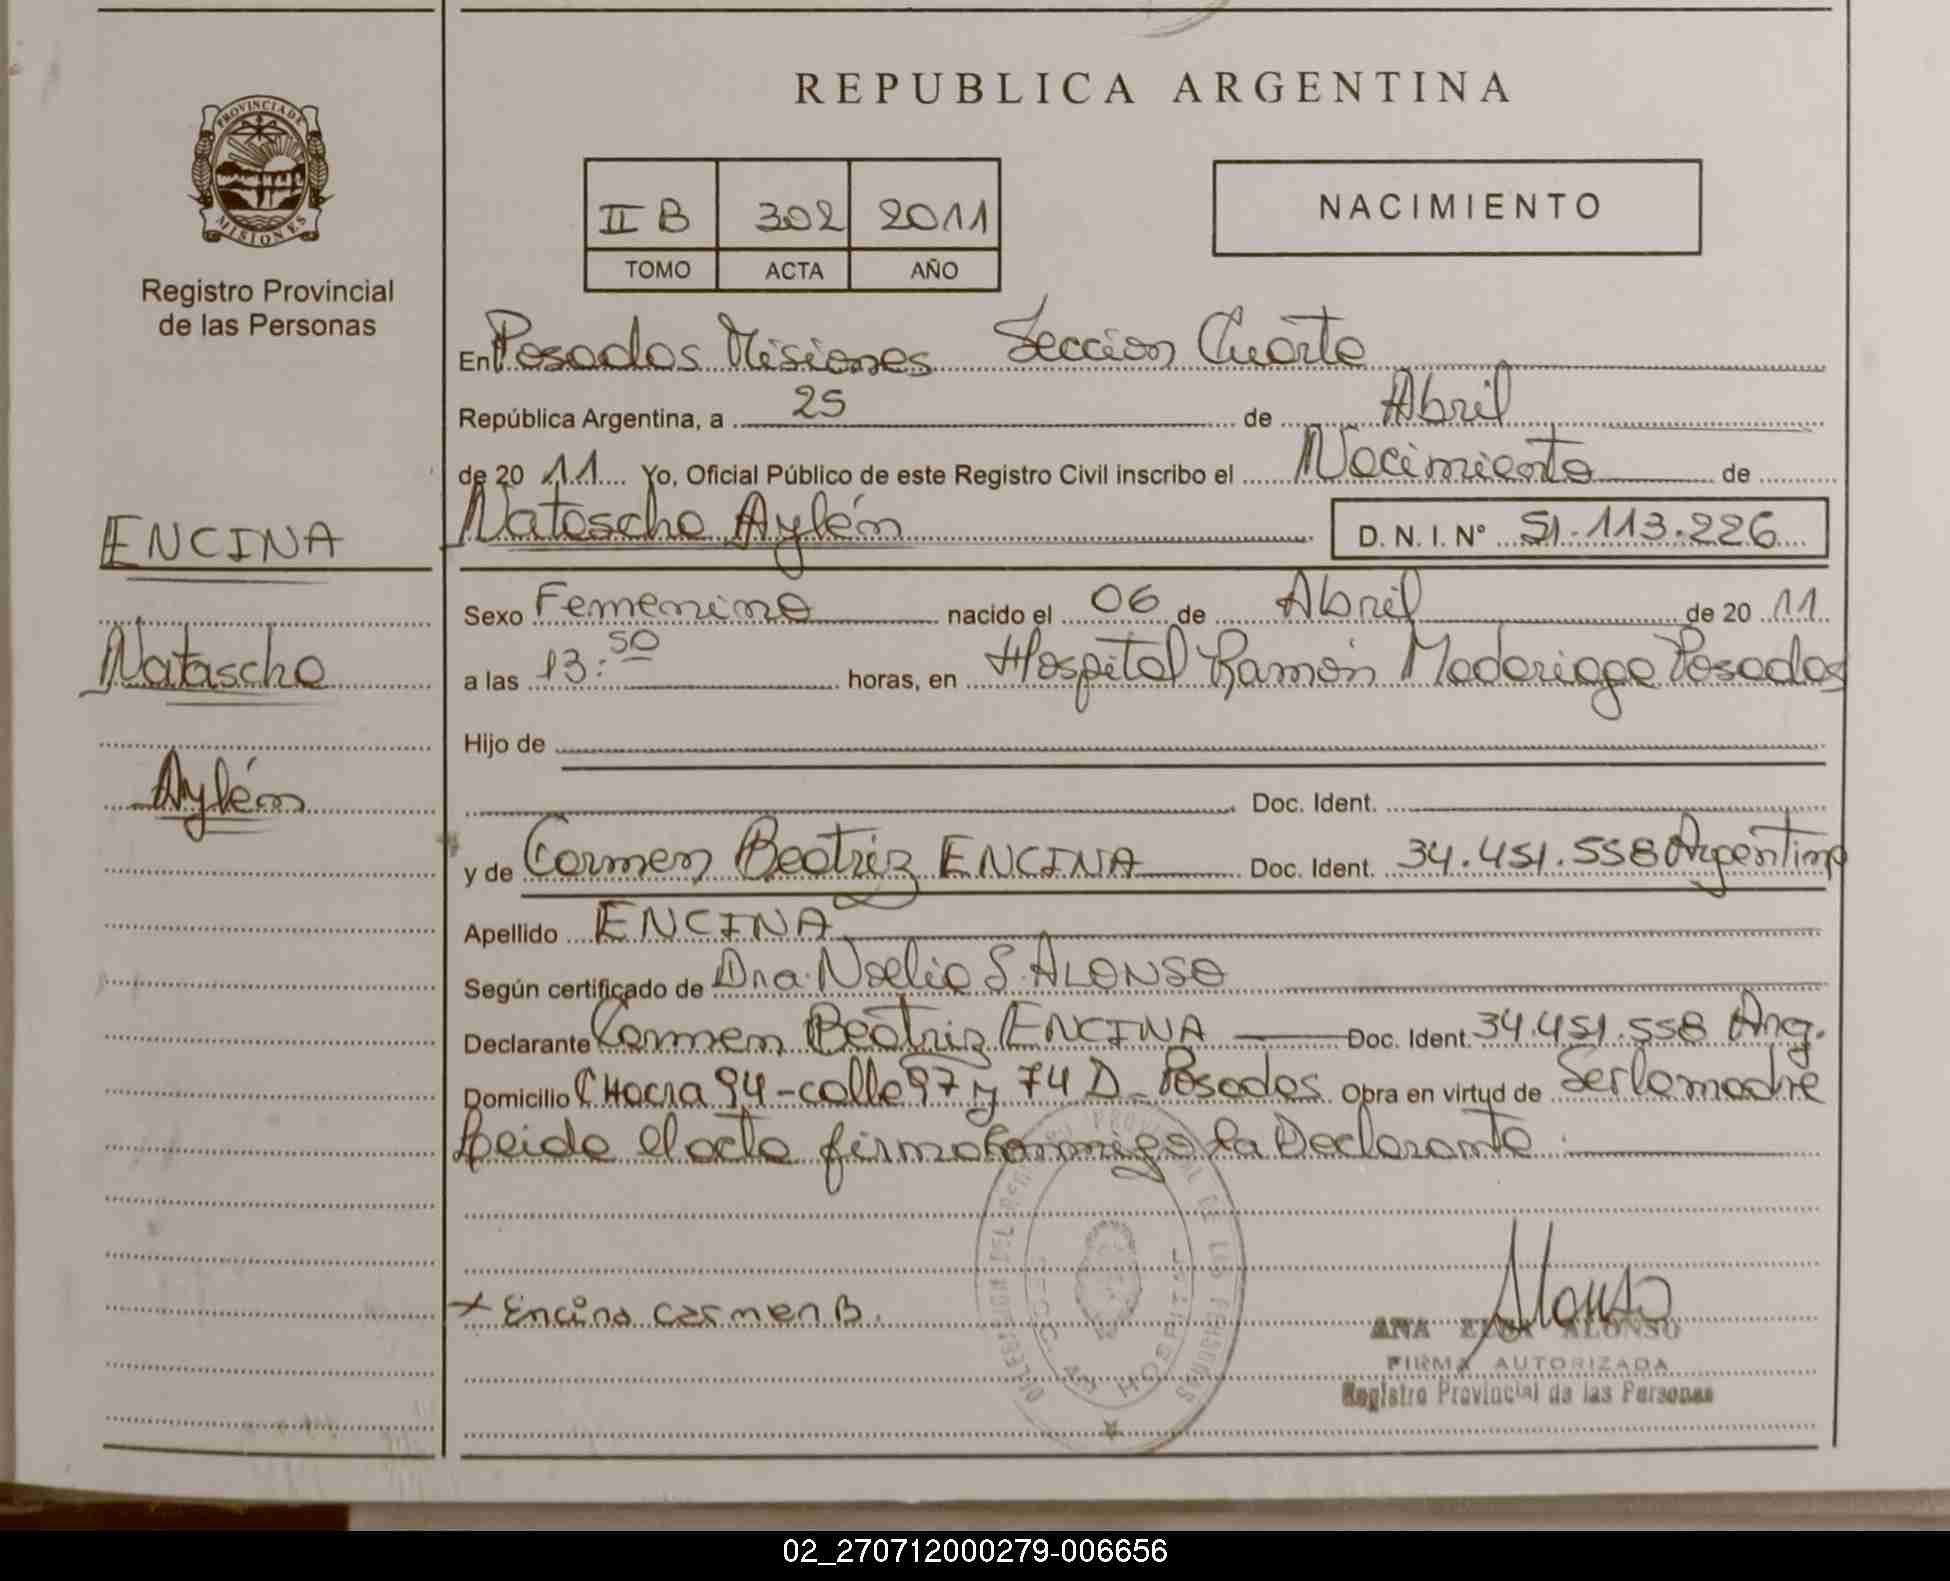 REPUBLICA ARGENTINA
PROVINCIA DE
MISIONES
Registro Provincial
de las Personas
II B 302 2011
TOMO ACTA AÑO
NACIMIENTO
En Posadas Misiones Seccion Cuarta
República Argentina, a 25 de Abril
de 20 11 Yo, Oficial Público de este Registro Civil inscribo el Nacimiento de
ENCINA
Natascha Aylén D. N. I. N° 51.113.226
Sexo Femenino nacido el 06 de Abril de 20 11
Natascha
a las 13:50 horas, en Hospital Ramón Madariaga Posadas
Hijo de
Aylén
Doc. Ident.
y de Carmen Beatriz ENCINA Doc. Ident. 34.451.558 Argentina
Apellido ENCINA
Según certificado de Dra. Noelia S. ALONSO
Declarante Carmen Beatriz ENCINA Doc. Ident. 34.451.558 Arg.
Domicilio CHacra 94-calle 97 y 74 D_Posadas Obra en virtud de Ser la madre
Leida el acta firma conmigo la Declarante
DELEGACION DEL REGISTRO PROVINCIAL DE LAS PERSONAS
HOSPITAL
x Encina Carmen B.
Alonso
ANA ELSA ALONSO
FIRMA AUTORIZADA
Registro Provincial de las Personas
02_270712000279-006656